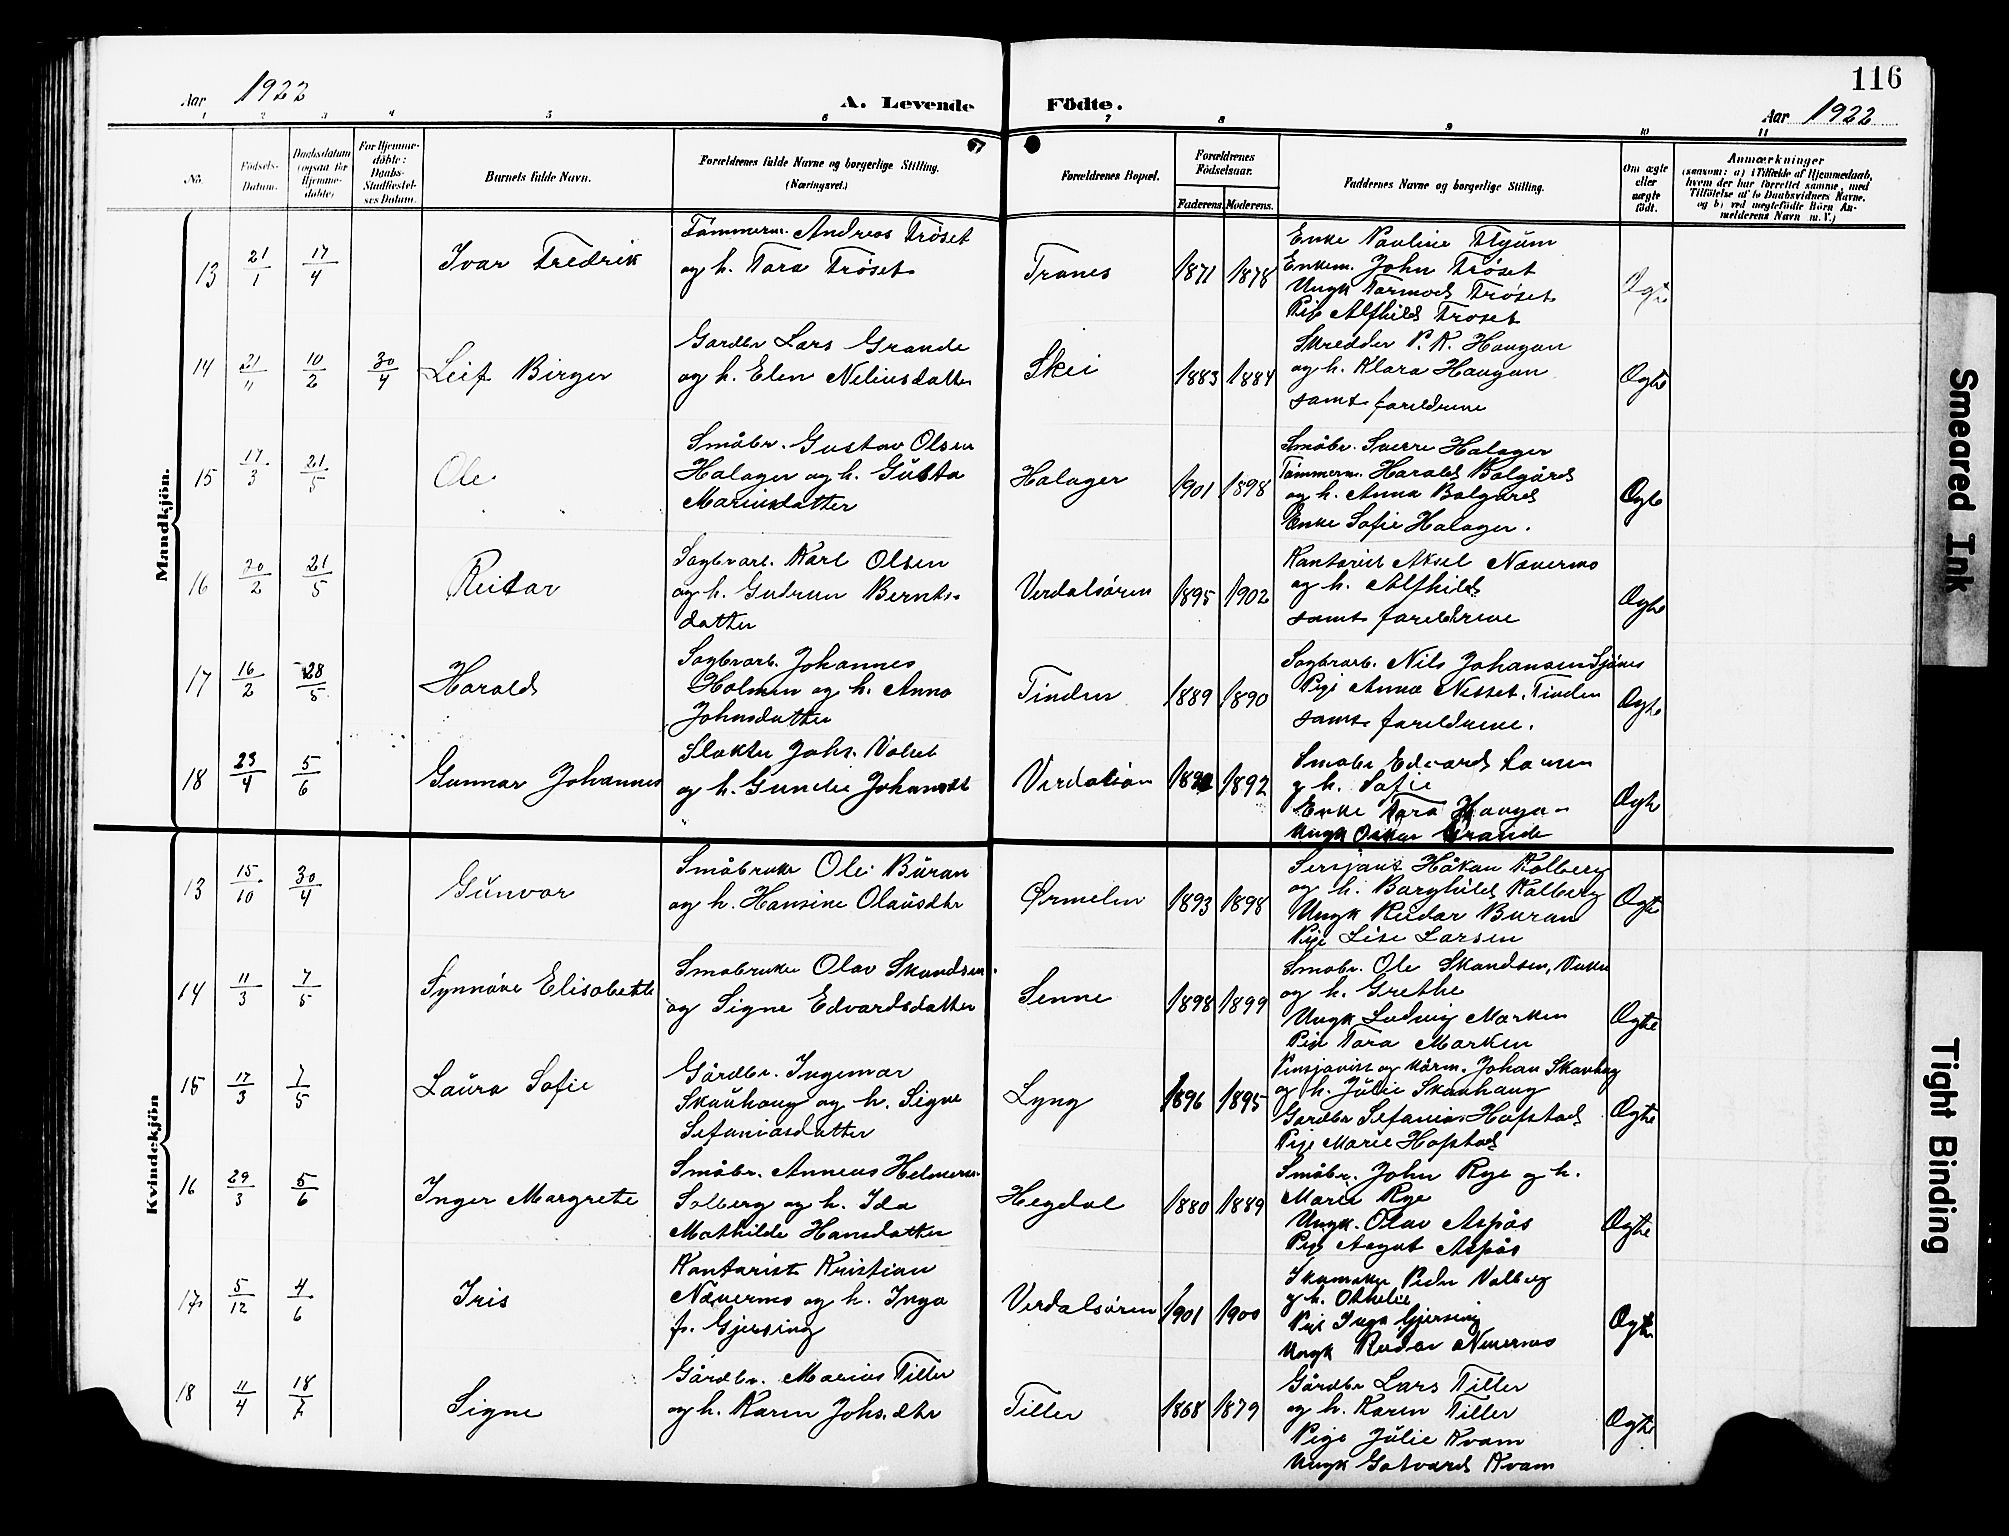 116
Aar 1922
A. Levende Födte.
Aar 1922
1 2 3 4 5 6 7 8 9 10 11
No. Födsels-Datum. Daabsdatum (ogsaa for Hjemme-döbte). For Hjemme-döbte: Daabs-Stadfæstel-ses Datum. Barnets fulde Navn. Forældrenes fulde Navne og borgerlige Stilling. (Næringsvei.) Forældrenes Bopæl. Forældrenes Födselsaar. Faderens. Moderens. Faddernes Navne og borgerlige Stilling. Om ægte eller uægte født. Anmærkninger
Mandkjön.
13 21/1 17/4 Ivar Fredrik
Tömmerm. Andreas Trøset
og h. Tora Trøset
Tranes 1871 1878
Enke Pauline Flyum
Enkem. John Trøset
Ungk Tormod Trøset
Pige Alfhild Trøset
Ægte
14 21/11 10/2 30/4 Leif Birger
Gardbr Lars Grande
og h. Elen Neliusdatter
Skei 1883 1884
Skredder P. K. Haugan
og h. Klara Haugan
samt foreldrene
Ægte
15 17/3 21/5 Ole
Småbr. Gustav Olsen
Halager og h. Gusta
Mariusdatter
Halager 1901 1898
Småbr. Sverre Halager
Tömmerm. Harald Bolgård
og h. Anna Bolgård
Enke Sofie Halager.
Ægte
16 20/2 21/5 Reidar
Sagbrarb. Karl Olsen
og h. Gudrun Bernts-
datter
Verdalsøren 1895 1902
Kontorist Aksel Nævermo
og h. Alfhild
samt foreldrene
Ægte
17 16/2 28/5 Harald
Sagbrarb. Johannes
Holmen og h. Anna
Johnsdatter
Tinden 1889 1890
Sagbrarb. Nils Johansen
Pige Anna Nesset, Tinden
samt foreldrene.
Ægte
18 23/4 5/6 Gunnar Johannes
Slakter Johs. Volset
og h. Gunelie
1892
Småbr Edvard Larsen
og h. Sofie
Enke Tora Haugan
Ungk Oskar Grande
Ægte
Kvindekjön
13 15/10 30/4 Gunvor
Småbruker Ole Buran
og h. Hansine Olausdtr
Ørmelen 1893 1898
Sersjant Håkon Kolberg
og h. Borghild Kolberg
Ungk Reidar Buran
Pige Lise Larsen
Ægte
14 11/3 7/5 Synnöve Elisabeth
Småbruker Olav Skandsen
og Signe Edvardsdatter
Senne 1898 1899
Småbr. Ole Skandsen, Vuku
og h. Grethe
Ungk Ludvig Marken
Pige Tora Marken
Ægte
15 17/3 7/5 Laura Sofie
Gårdbr. Ingemar
Skauhaug og h. Signe
Sefaniasdatter
Lyng 1896 1895
Pensjonist og Johan Skauhaug
og h. Julie Skauhaug
Gardbr Sefanias Hofstad
Pige Marie Hofstad
Ægte
16 29/3 5/6 Inger Margrete
Småbr. Anneus
Solberg og h. Ida
Mathilde Hansdatter
Hegdal 1880 1889
Småbr. John Rye og h.
Marie Rye
Ungk. Olav Aspås
Pige Aagot Aspås
Ægte
17 5/12 4/6 Iris
Kontorist Kristian
Nævermo og h. Inga
f. Gjersing
Verdalsøren 1901 1900
Skomaker Peder Volberg
og h. Othelie
Pige Inga Gjersing
Ungk Reidar Nevermo
Ægte
18 11/4 Signe
Gårdbr. Marius Tiller
og h. Karen Johs.dtr
Tiller 1868 1879
Gårdbr Lars Tiller
og h. Karen Tiller
Pige Julie Kvam
Ungk Gotvard Kvam
Ægte
Smeared Ink
Tight Binding